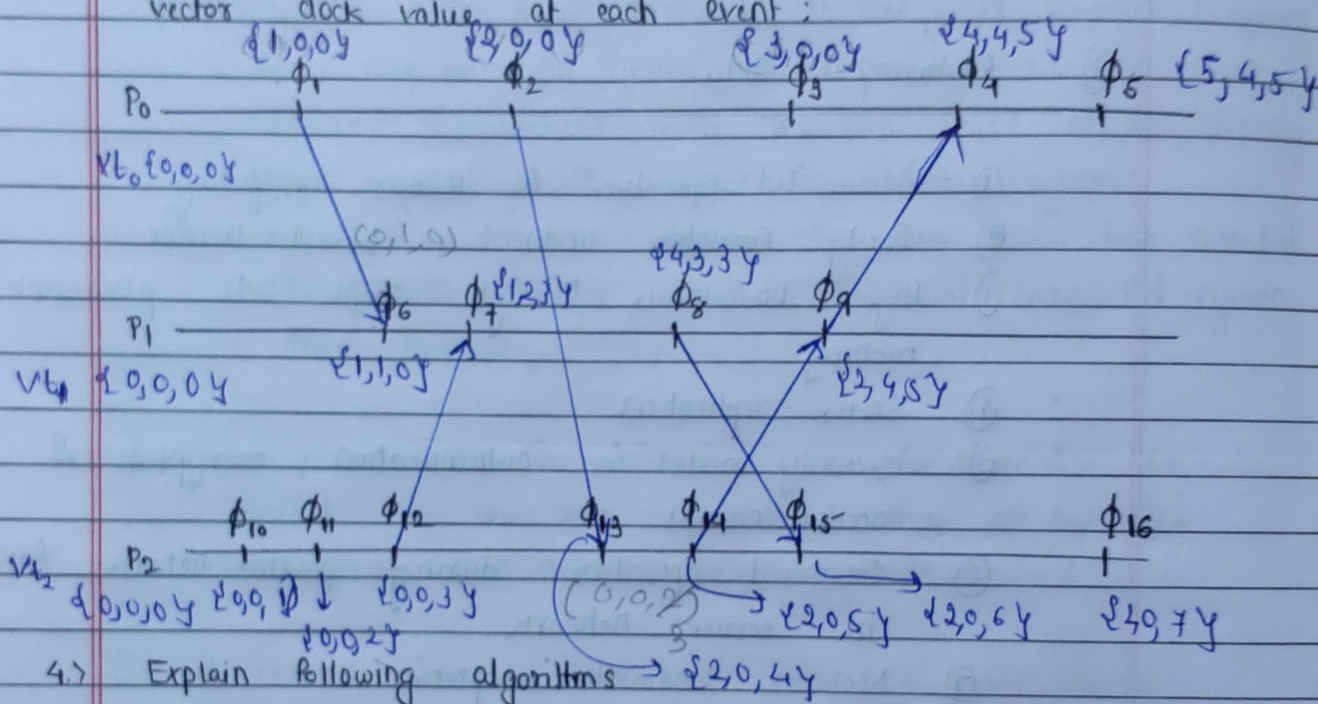 vector clock value at each event :
{1,0,0} {2,0,0} {3,0,0} {4,4,5}
ϕ1 ϕ2 ϕ3 ϕ4 ϕ5 {5,4,5}
P0
Vt0 {0,0,0}
(0,1,0) {4,3,3}
ϕ6 ϕ7 {1,2,3} ϕ8 ϕ9
P1
{1,1,0} {2,4,5}
Vt1 {0,0,0}
ϕ10 ϕ11 ϕ12 ϕ13 ϕ14 ϕ15 ϕ16
P2
Vt2 {0,0,0} {0,0,1} {0,0,3} (0,0,2) {2,0,5} {2,0,6} {2,0,7}
{0,0,2} 3
4.> Explain following algorithms {2,0,4}